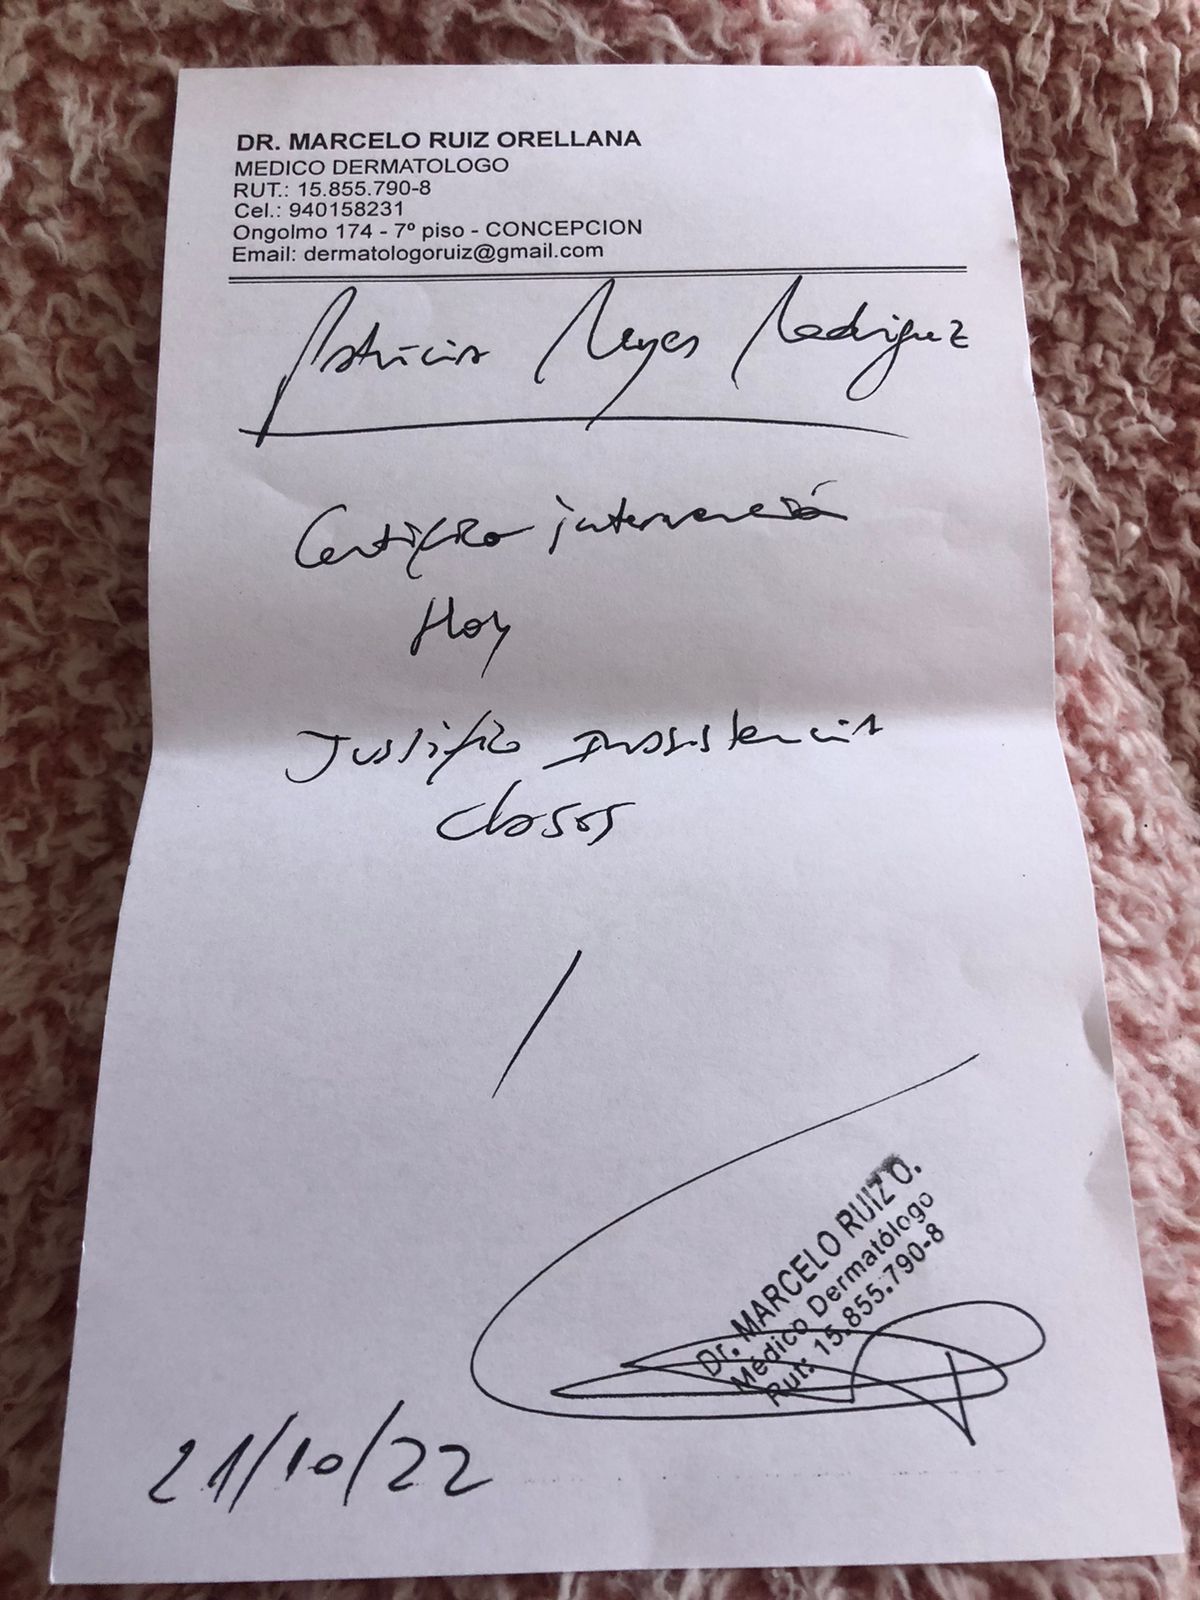 DR. MARCELO RUIZ ORELLANA
MEDICO DERMATOLOGO
RUT.: 15.855.790-8
Cel.: 940158231
Ongolmo 174 - 7º piso - CONCEPCION
Email: dermatologoruiz@gmail.com
Patricia Reyes Rodriguez
Certifico intervención
Hoy
Justifico Inasistencia
clases
Dr. MARCELO RUIZ O.
Médico Dermatólogo
Rut: 15.855.790-8
21/10/22